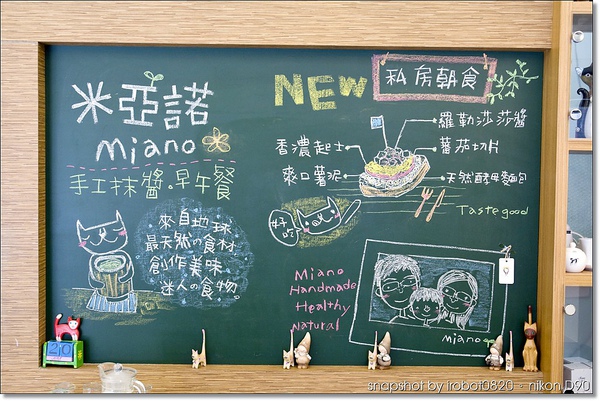 米亞諾
miano
手工抹醬.早午餐
來自地球
最天然の食材
創作美味
迷人の食物。
NEW
私房朝食
羅勒莎莎醬
香濃起士
蕃茄切片
爽口薯泥
天然酵母麵包
Taste good
好吃
Miano
Handmade
Healthy
Natural
miano
20
snapshot by irobot0820 - nikon D90